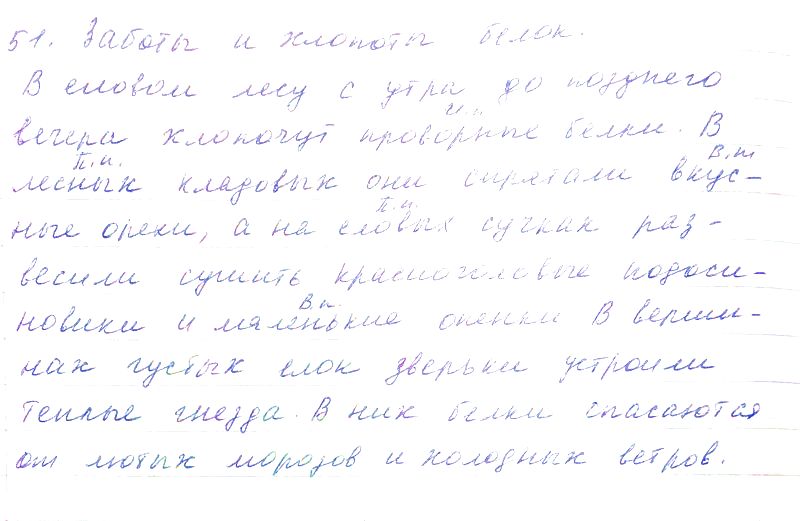 51. Заботы и хлопоты белок.
В еловом лесу с утра до позднего
и.п.
вечера хлопочут проворные белки. В
П.п. В.п.
лесных кладовых они спрятали вкус-
П.п.
ные орехи, а на еловых сучках раз-
весили сушить красноголовые подоси-
В.п.
новики и маленькие опенки В верши-
нах густых елок зверьки устроили
теплые гнезда. В них белки спасаются
от лютых морозов и холодных ветров.